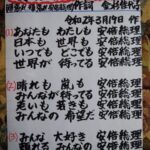 作詞 金杉佳代子
令和2年3月19日 作
(1)あなたも わたしも 安倍総理
日本も 世界も 安倍総理
いつでも どこでも 安倍総理
世界が 待ってる 安倍総理
(2)晴れも 嵐も 安倍総理
みんなが待ってる 安倍総理
老いも 若きも 安倍総理
みんなの 希望だ 安倍総理
(3)みんな 大好き 安倍総理
安倍総理